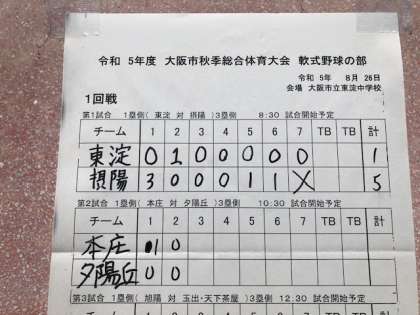 令和 5年度 大阪市秋季総合体育大会 軟式野球の部
令和 5年 8月 26日
会場 大阪市立東淀中学校
1回戦
第1試合 1塁側( 東淀 対 摂陽 )3塁側 8:30 試合開始予定
チーム 1 2 3 4 5 6 7 TB TB 計
東淀 0 1 0 0 0 0 0 1
摂陽 3 0 0 0 1 1 X 5
第2試合 1塁側( 本庄 対 夕陽丘 )3塁側 10:30 試合開始予定
チーム 1 2 3 4 5 6 7 TB TB 計
本庄 1 0
夕陽丘 0 0
第3試合 1塁側( 旭陽 対 玉出・天下茶屋 )3塁側 12:30 試合開始予定
チーム 1 2 3 4 5 6 7 TB TB 計